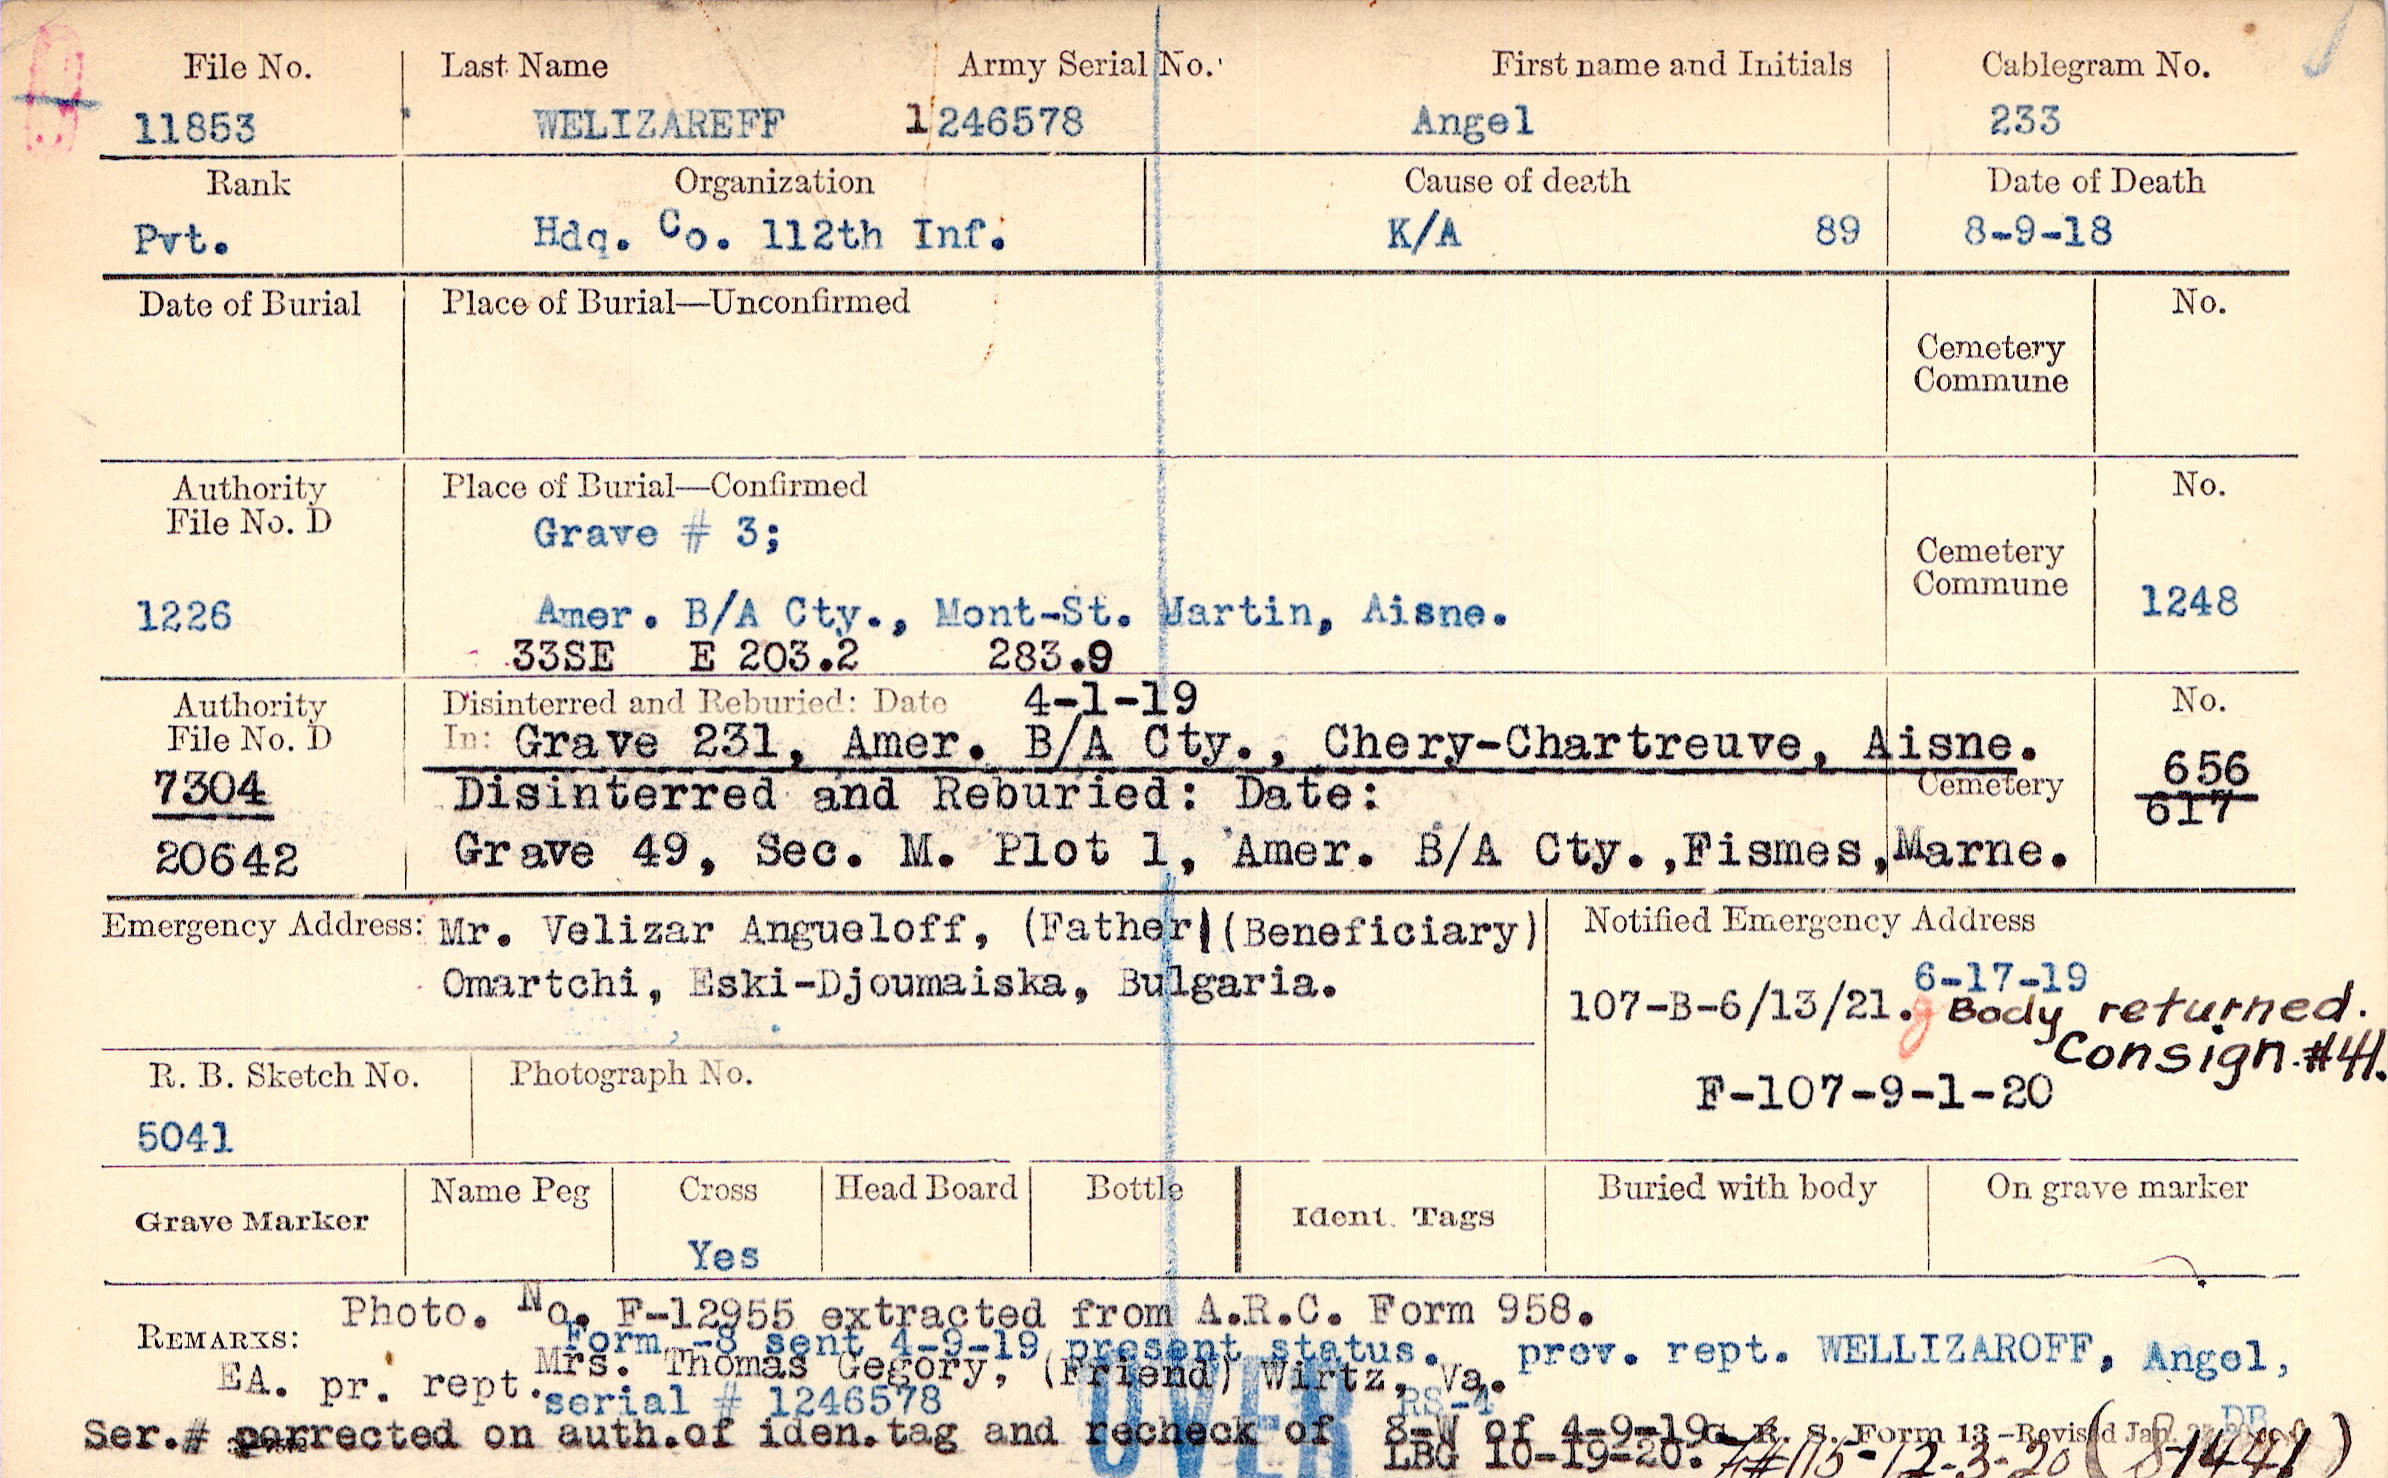 File No. Last Name Army Serial No. First name and Initials Cablegram No.
11853 WELIZAREFF 1246578 Angel 233
Rank Organization Cause of death Date of Death
Pvt. Hdq. Co. 112th Inf. K/A 89 8-9-18
Date of Burial Place of Burial—Unconfirmed No.
Cemetery
Commune
Authority Place of Burial—Confirmed No.
File No. D Grave # 3;
Cemetery
Commune
1226 Amer. B/A Cty., Mont-St. Martin, Aisne. 1248
33SE E 203.2 283.9
Authority Disinterred and Reburied: Date 4-1-19 No.
File No. D In: Grave 231, Amer. B/A Cty., Chery-Chartreuve, Aisne.
7304 Disinterred and Reburied: Date: Cemetery 656
617
20642 Grave 49, Sec. M. Plot 1, Amer. B/A Cty.,Fismes,Marne.
Emergency Address: Mr. Velizar Angueloff, (Father) (Beneficiary) Notified Emergency Address
Omartchi, Eski-Djoumaiska, Bulgaria. 6-17-19
107-B-6/13/21. Body returned.
Consign. #41.
R. B. Sketch No. Photograph No.
F-107-9-1-20
5041
Grave Marker Name Peg Cross Head Board Bottle Ident. Tags Buried with body On grave marker
Yes
REMARKS: Photo. No. F-12955 extracted from A.R.C. Form 958.
Form -8 sent 4-9-19 present status. prev. rept. WELLIZAROFF, Angel,
EA. pr. rept. Mrs. Thomas Gegory, (Friend) Wirtz, Va.
serial # 1246578 RS-4
OVER
Ser.# corrected on auth.of iden.tag and recheck of 8-W of 4-9-19 G. R. S. Form 13-Revised Jan.
LBG 10-19-20.